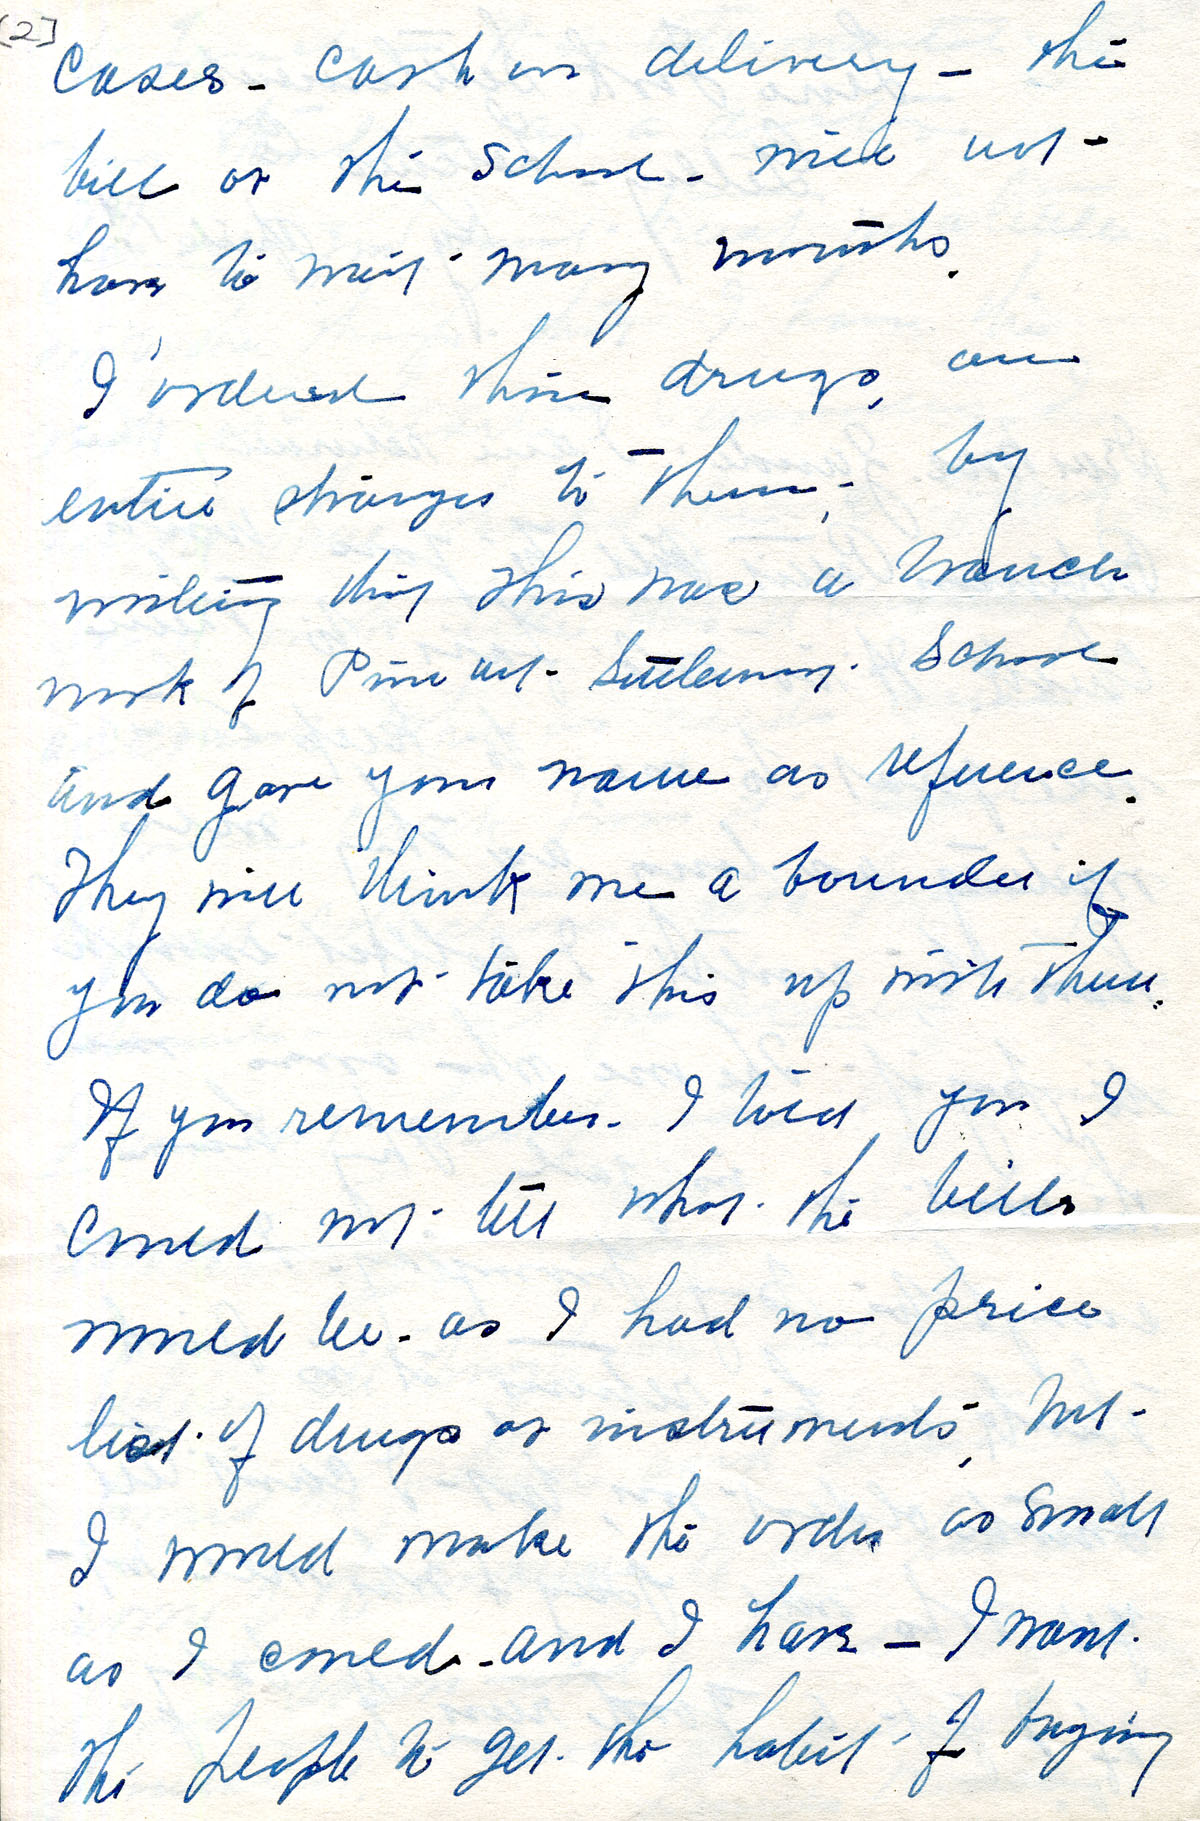 [2]
Cases - Cash on delivery - the
bill or the School - will not -
have to wait many months.
I ordered these drugs, an
entire stranger to them, - by
writing that this was a branch
work of Pine Mt. Settlement School
and gave your name as reference.
They will think me a bounder if
you do not take this up with them.
If you remember - I told you I
could not tell what the bills
would be - as I had no price
list of drugs or instruments, but -
I would make the order as small
as I could - and I have - I want
the people to get the habit of buying